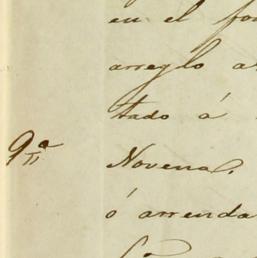 en el for
arreglo a
tado á
9ª Novena.
ó arrenda